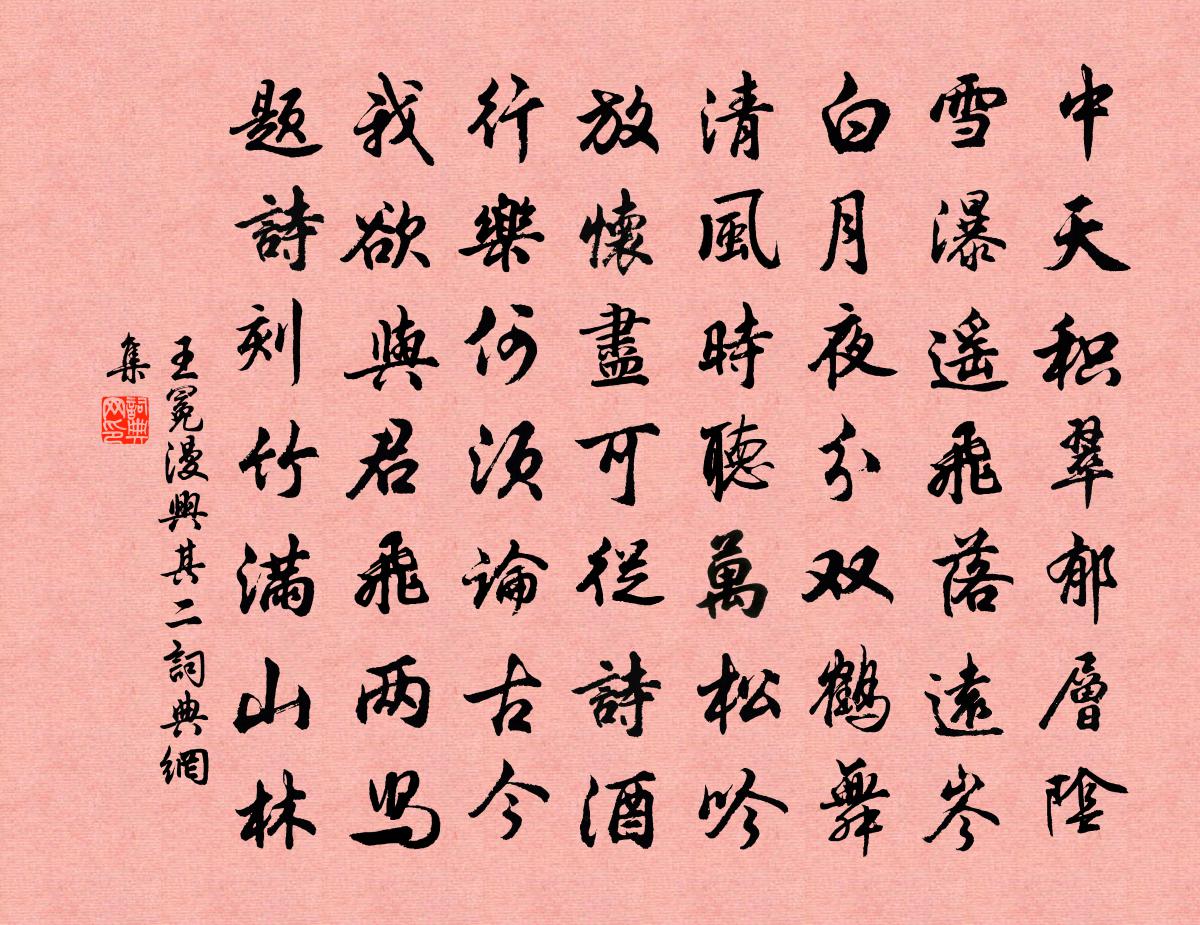 中天积翠郁層陰
雪瀑遥飛落遠岑
白月夜分双鶴舞
清風時聽萬松吟
放懷盡可從詩酒
行樂何须論古今
我欲與君飛两舄
题詩刻竹满山林
王冕漫興其二詞典網
集
詞典
网印